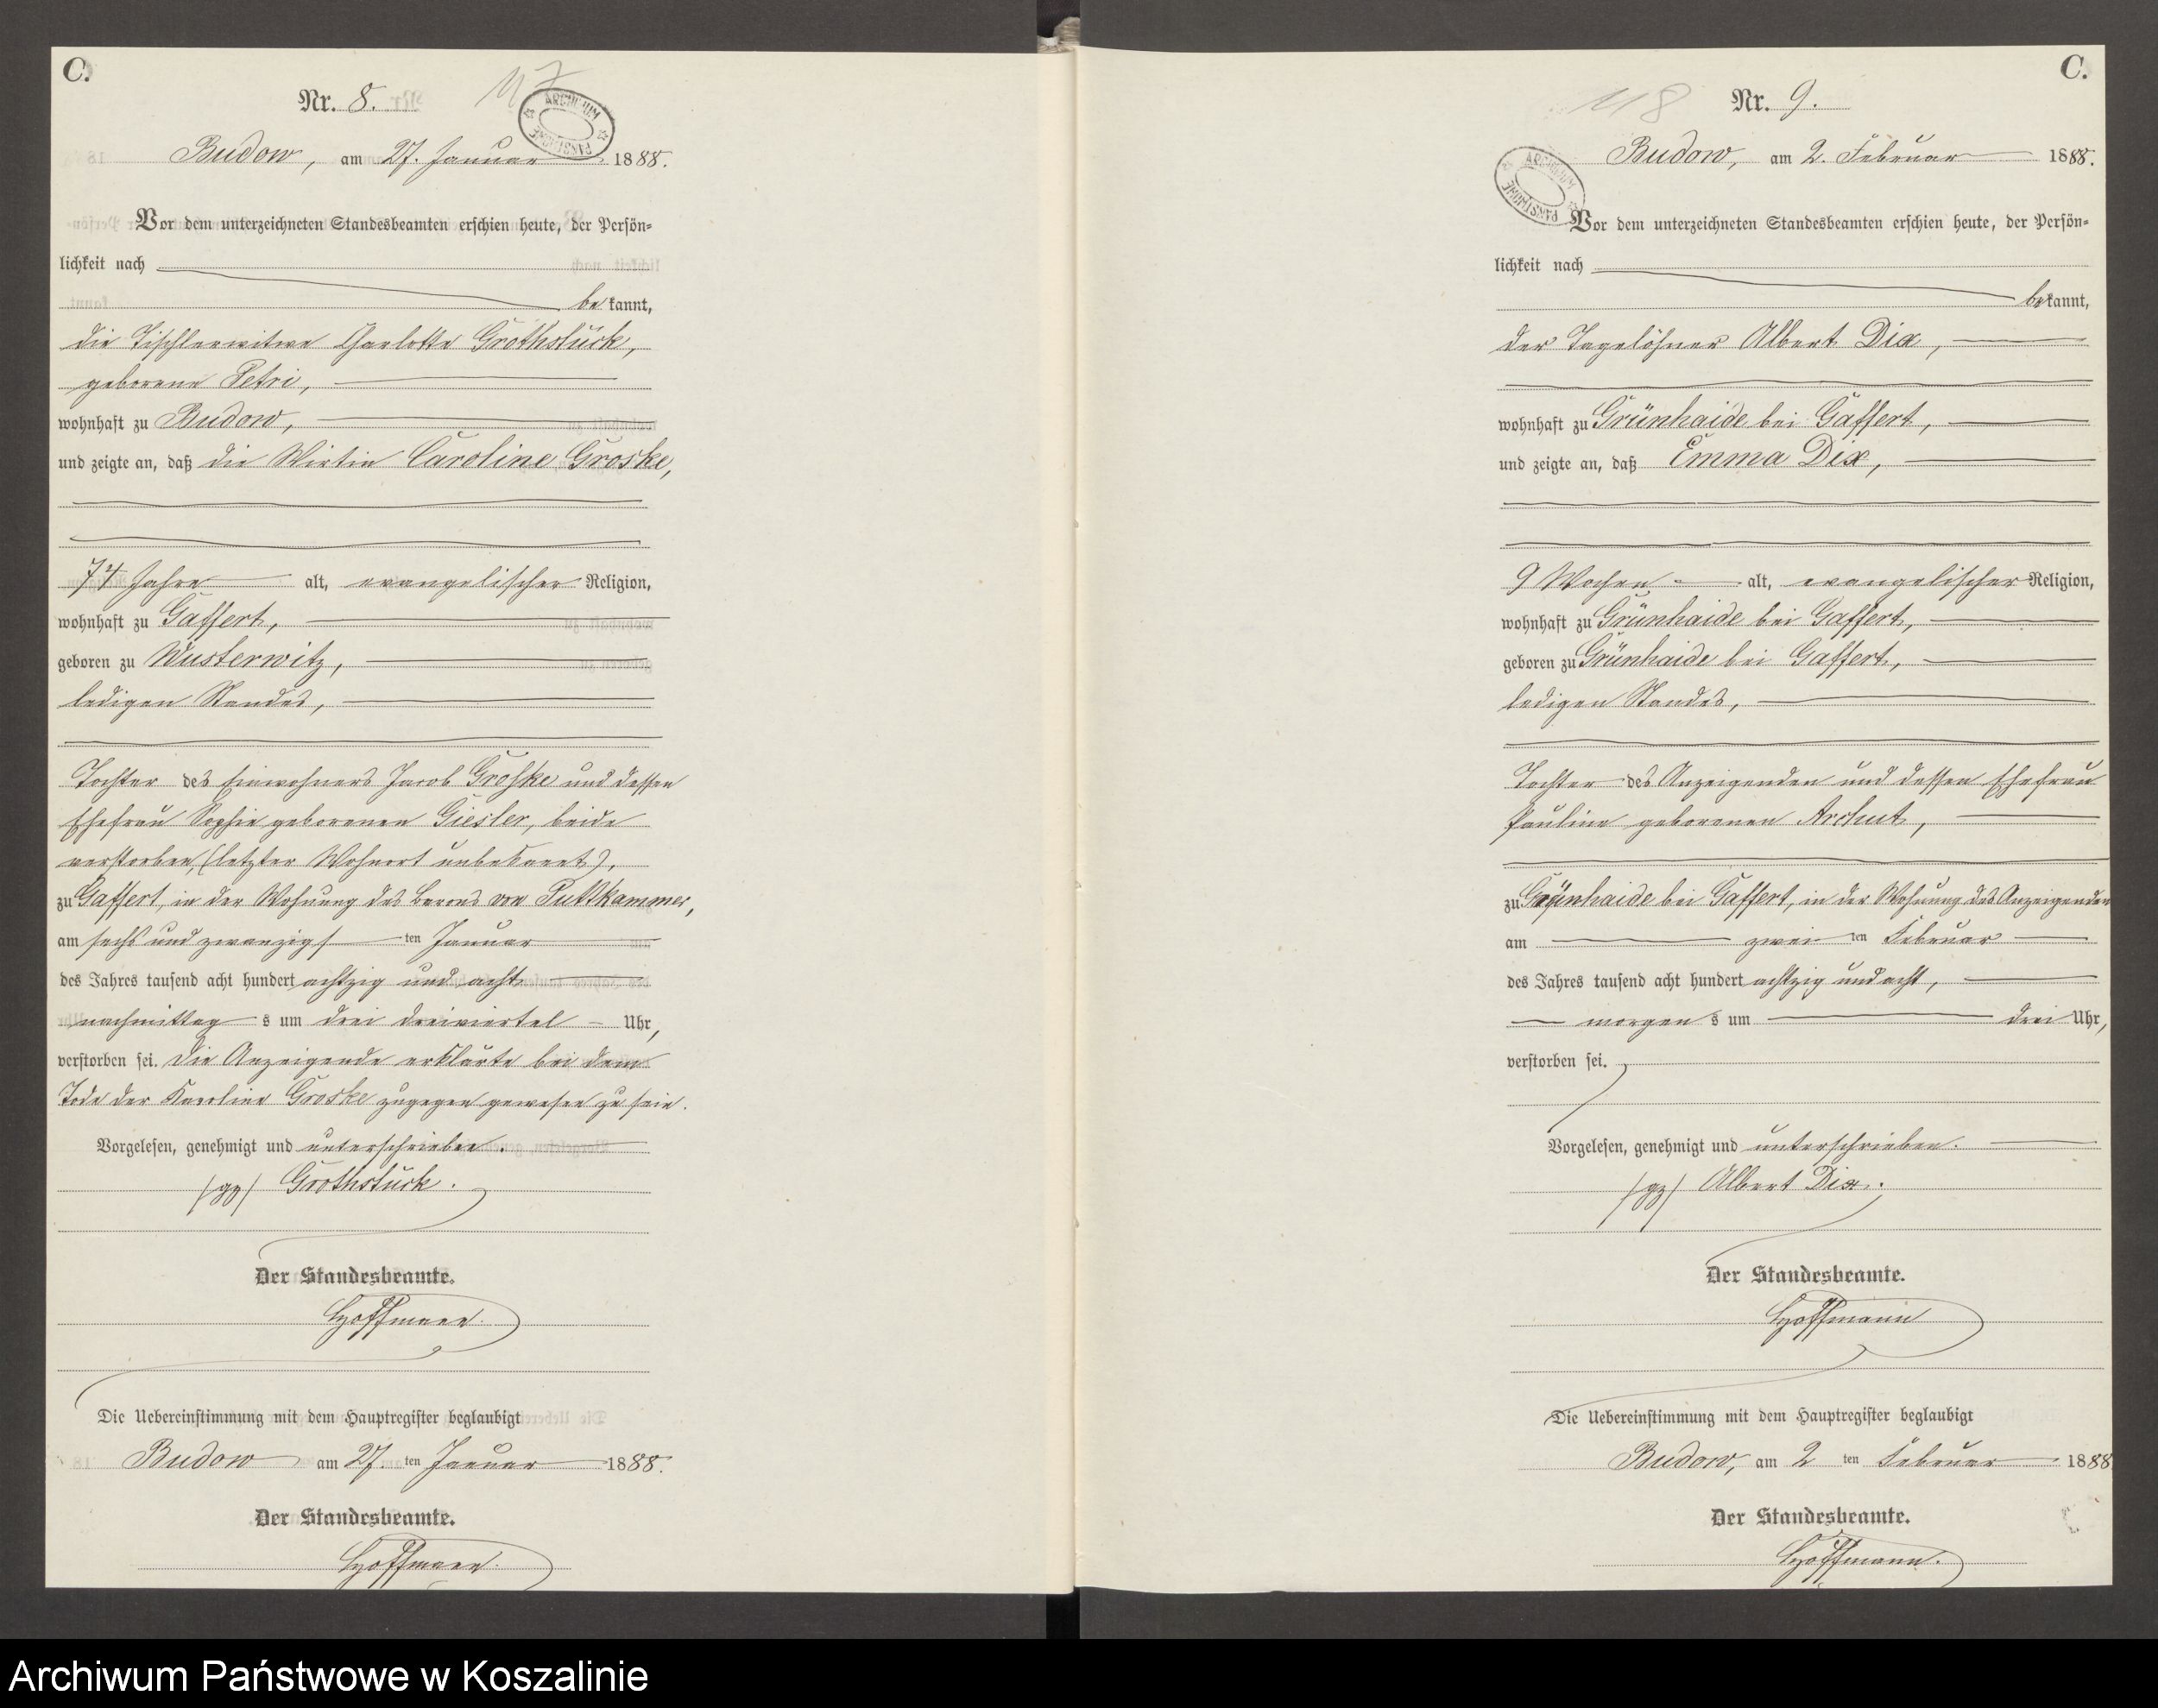 C.
Nr. 8.
117
ARCHIWUM PAŃSTWOWE
Budow, am 27. Januar 1888.
Vor dem unterzeichneten Standesbeamten erschien heute, der Persön-
lichkeit nach
be kannt,
die Tischlerwitwe Charlotte Grothstück,
geborene Petri,
wohnhaft zu Budow,
und zeigte an, daß die Wirtin Caroline Groske,
74 Jahre alt, evangelischer Religion,
wohnhaft zu Gaffert,
geboren zu Wusterwitz,
ledigen Standes,
Tochter des Einwohners Jacob Groske und dessen
Ehefrau Sophie geborenen Giesler, beide
verstorben, (letzter Wohnort unbekannt),
zu Gaffert, in der Wohnung des Barons von Puttkammer,
am sechs und zwanzigs ten Januar
des Jahres tausend acht hundert achtzig und acht
nachmittag s um drei dreiviertel Uhr,
verstorben sei. Die Anzeigende erklärte bei dem
Tode der Karoline Groske zugegen gewesen zu sein.
Vorgelesen, genehmigt und unterschrieben.
(gz) Grothstück.
Der Standesbeamte.
Hoffmann.
Die Uebereinstimmung mit dem Hauptregister beglaubigt
Budow am 27. ten Januar 1888.
Der Standesbeamte.
Hoffmann.
C.
118
Nr. 9.
ARCHIWUM PAŃSTWOWE
Budow, am 2. Februar 1888.
Vor dem unterzeichneten Standesbeamten erschien heute, der Persön-
lichkeit nach
be kannt,
der Tagelöhner Albert Dix,
wohnhaft zu Grünhaide bei Gaffert,
und zeigte an, daß Emma Dix,
9 Wochen alt, evangelischer Religion,
wohnhaft zu Grünhaide bei Gaffert,
geboren zu Grünhaide bei Gaffert,
ledigen Standes,
Tochter des Anzeigenden und dessen Ehefrau
Pauline geborenen Archut,
zu Grünhaide bei Gaffert, in der Wohnung des Anzeigenden
am zwei ten Februar
des Jahres tausend acht hundert achtzig und acht,
morgen s um drei Uhr,
verstorben sei.
Vorgelesen, genehmigt und unterschrieben.
(gz) Albert Dix.
Der Standesbeamte.
Hoffmann
Die Uebereinstimmung mit dem Hauptregister beglaubigt
Budow, am 2 ten Februar 1888
Der Standesbeamte.
Hoffmann.
Archiwum Państwowe w Koszalinie